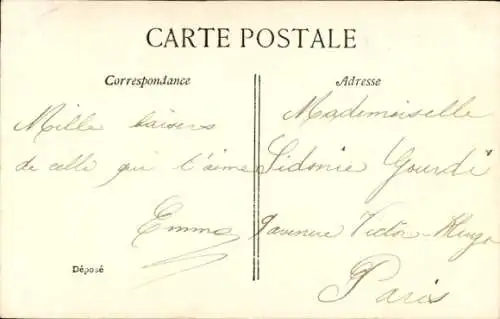 CARTE POSTALE
Correspondance
Mille baisers
de celle qui t'aime
Emma
Déposé
Adresse
Mademoiselle
Sidonie Gourdi
9 avenue Victor-Hugo
Paris